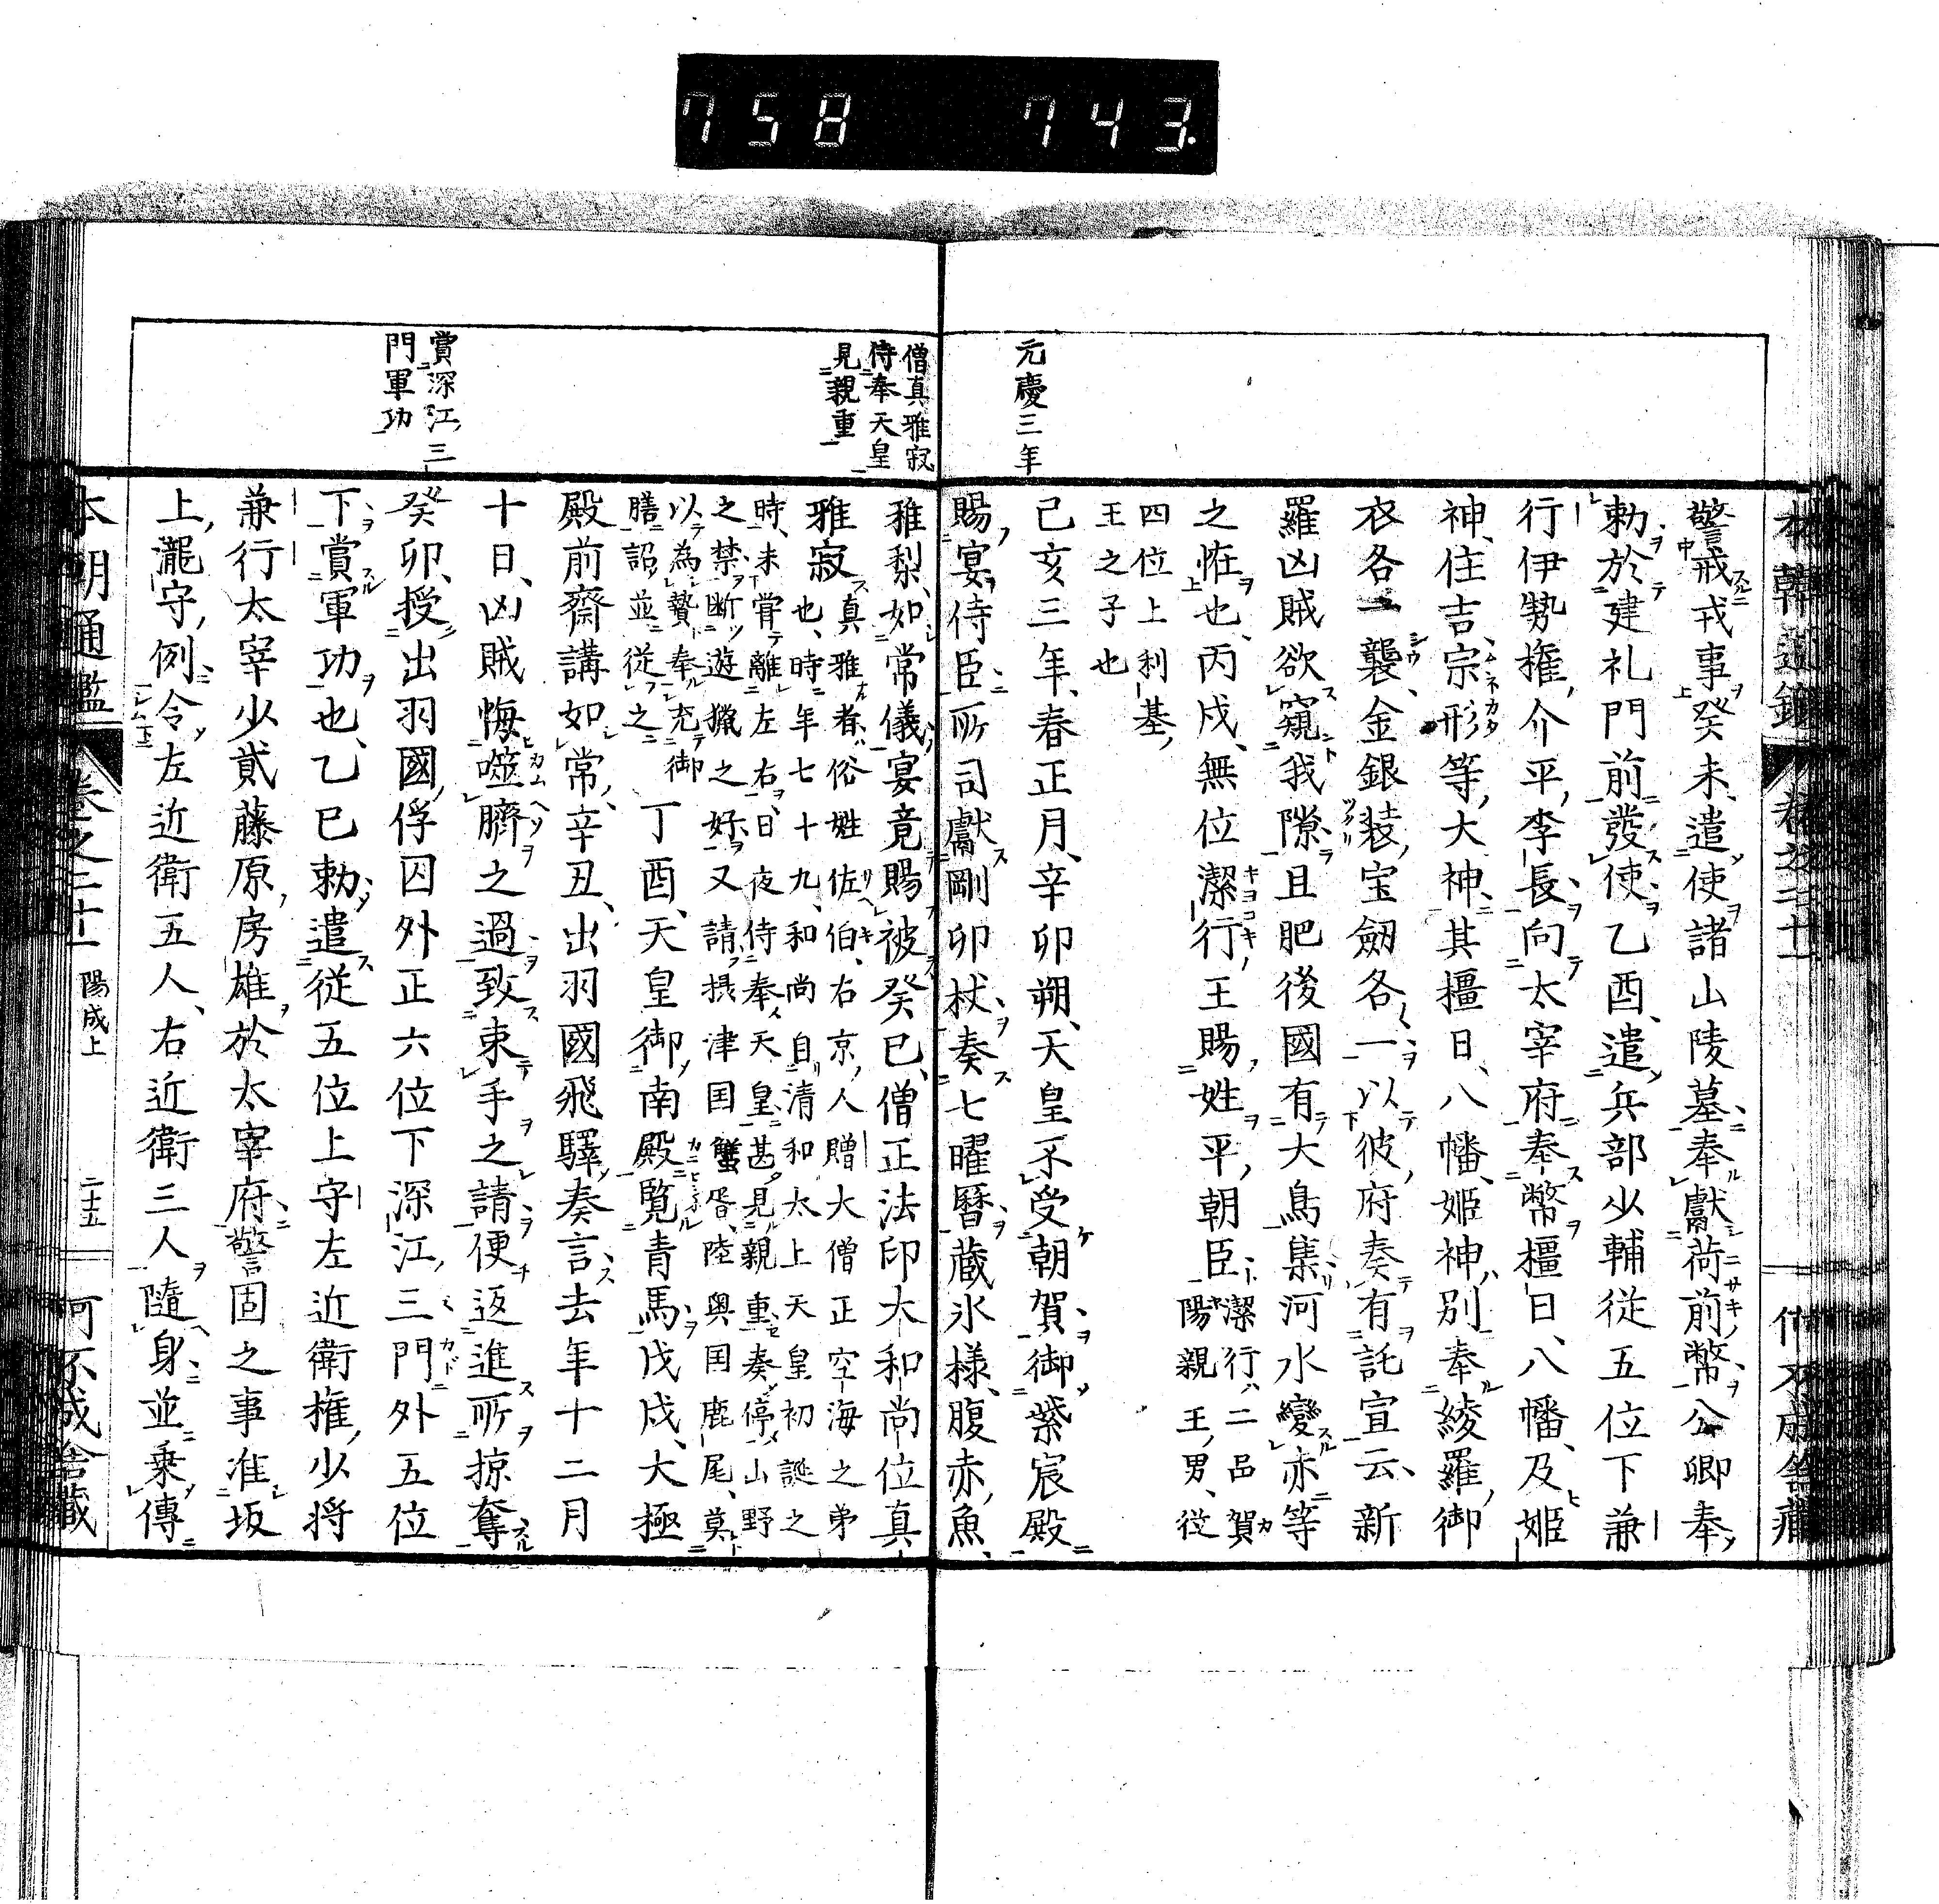 758 743.
元慶三年
警戒戎事癸未遣使諸山陵墓奉獻荷前幣公卿奉
勅於建礼門前發使乙酉遣兵部少輔従五位下兼
行伊勢権介平李長向太宰府奉幣橿日八幡及姫
神住吉宗形等大神其橿日八幡姫神別奉綾羅御
衣各一襲金銀装宝劔各一以彼府奏有託宣云新
羅凶賊欲窺我隙且肥後國有大鳥集河水變赤等
之恠也丙戌無位潔行王賜姓平朝臣潔行二品賀
陽親王男従
四位上利基
王之子也
己亥三年春正月辛卯朔天皇不受朝賀御紫宸殿
賜宴侍臣所司獻剛卯杖奏七曜暦蔵氷様腹赤魚
僧真雅寂
侍奉天皇
見親重
賞深江三
門軍功
雅梨如常儀宴竟賜被癸巳僧正法印大和尚位真
雅寂也真雅者俗姓佐伯右京人贈大僧正空海之弟
時年七十九和尚自清和太上天皇初誕之
時未甞離左右日夜侍奉天皇甚見親重奏停山野
之禁断遊獵之好又請摂津国蟹胥陸奥国鹿尾莫
以為贄奉充御
膳詔並従之
丁酉天皇御南殿覧青馬戊戌大極
殿前齋講如常辛丑出羽國飛驛奏言去年十二月
十日凶賊悔噬臍之過致束手之請便返進所掠奪
癸卯授出羽國俘囚外正六位下深江三門外五位
下賞軍功也乙巳勅遣従五位上守左近衛権少将
兼行太宰少貳藤原房雄於太宰府警固之事准坂
上瀧守例令左近衛五人右近衛三人隨身並乗傳
本朝通鑑 卷之二十一 陽成上 二十五